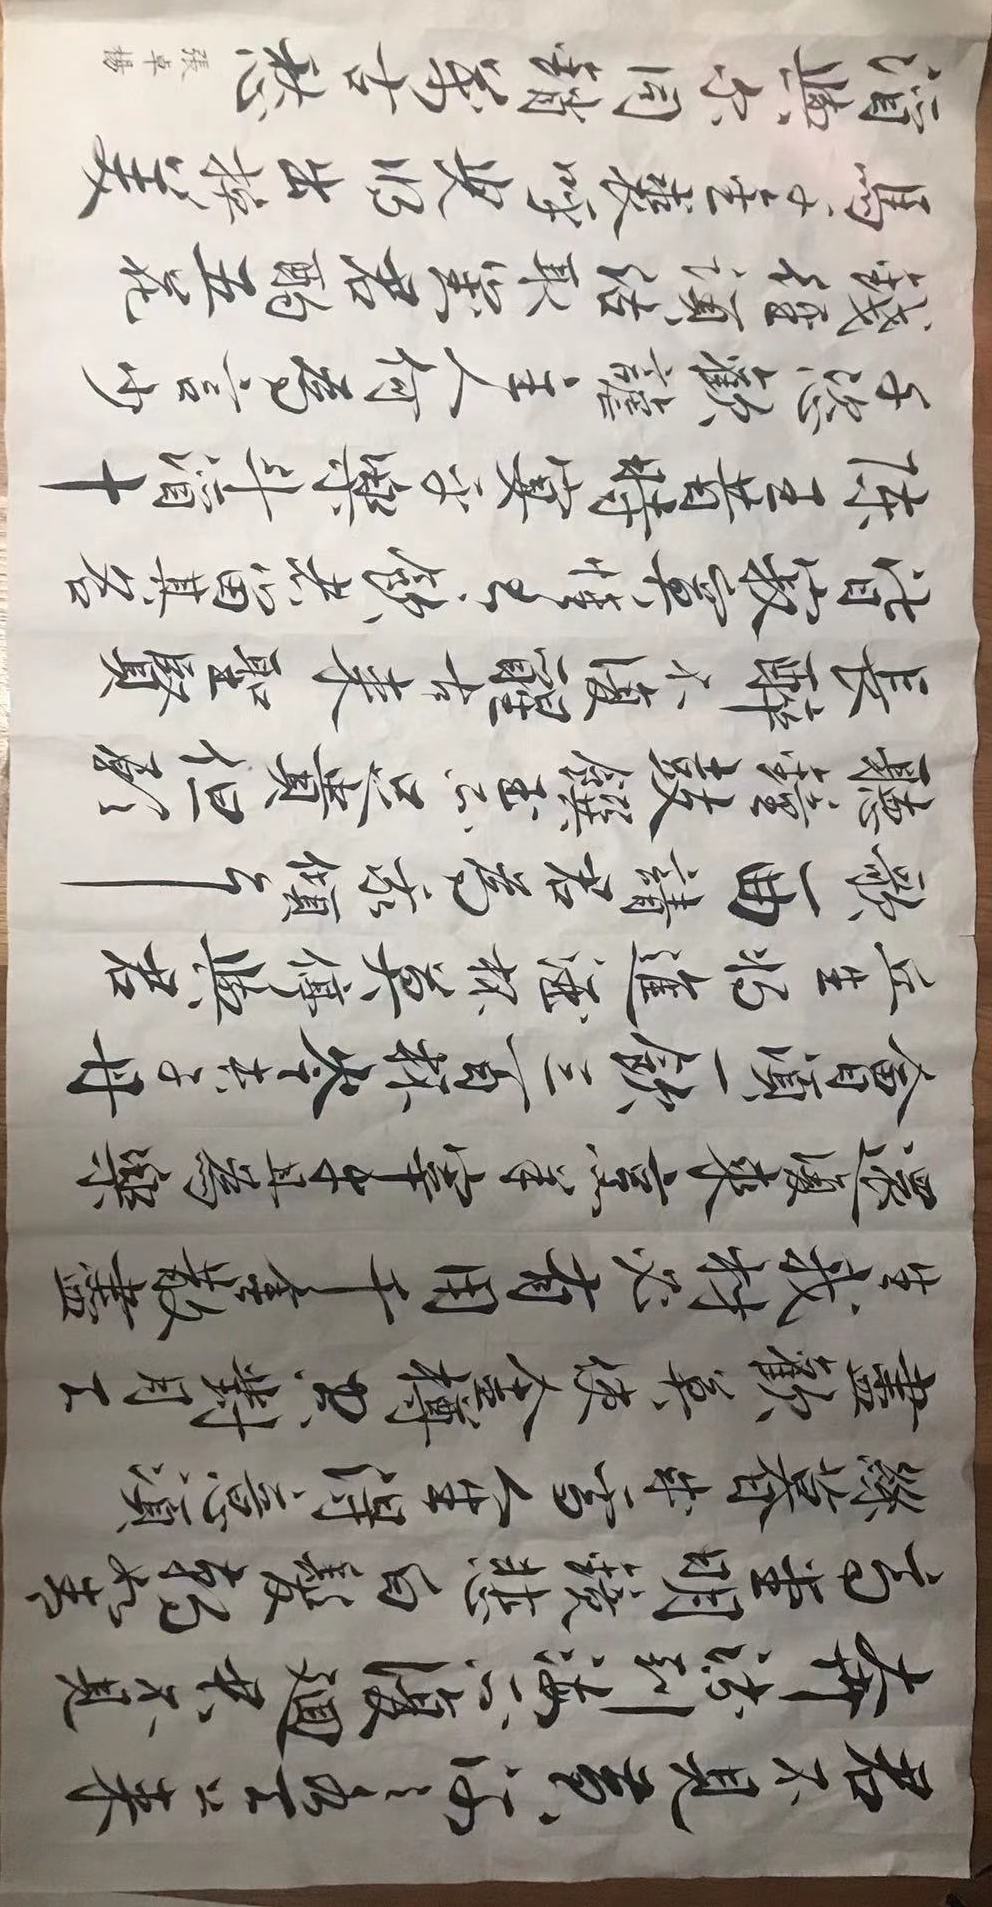 君不見黃河之水天上來
奔流到海不復迴君不見
高堂明鏡悲白髮朝如青
絲暮成雪人生得意須
盡歡莫使金樽空對月天
生我材必有用千金散盡
還復來烹羊宰牛且為樂
會須一飲三百杯岑夫子丹
丘生將進酒杯莫停與君
歌一曲請君為我傾耳
聽鐘鼓饌玉不足貴但願
長醉不復醒古來聖賢
皆寂寞惟有飲者留其名
陳王昔時宴平樂斗酒十
千恣歡謔主人何為言少
錢徑須沽取對君酌五花
馬千金裘呼兒將出換美
酒與尔同銷萬古愁
張卓梅